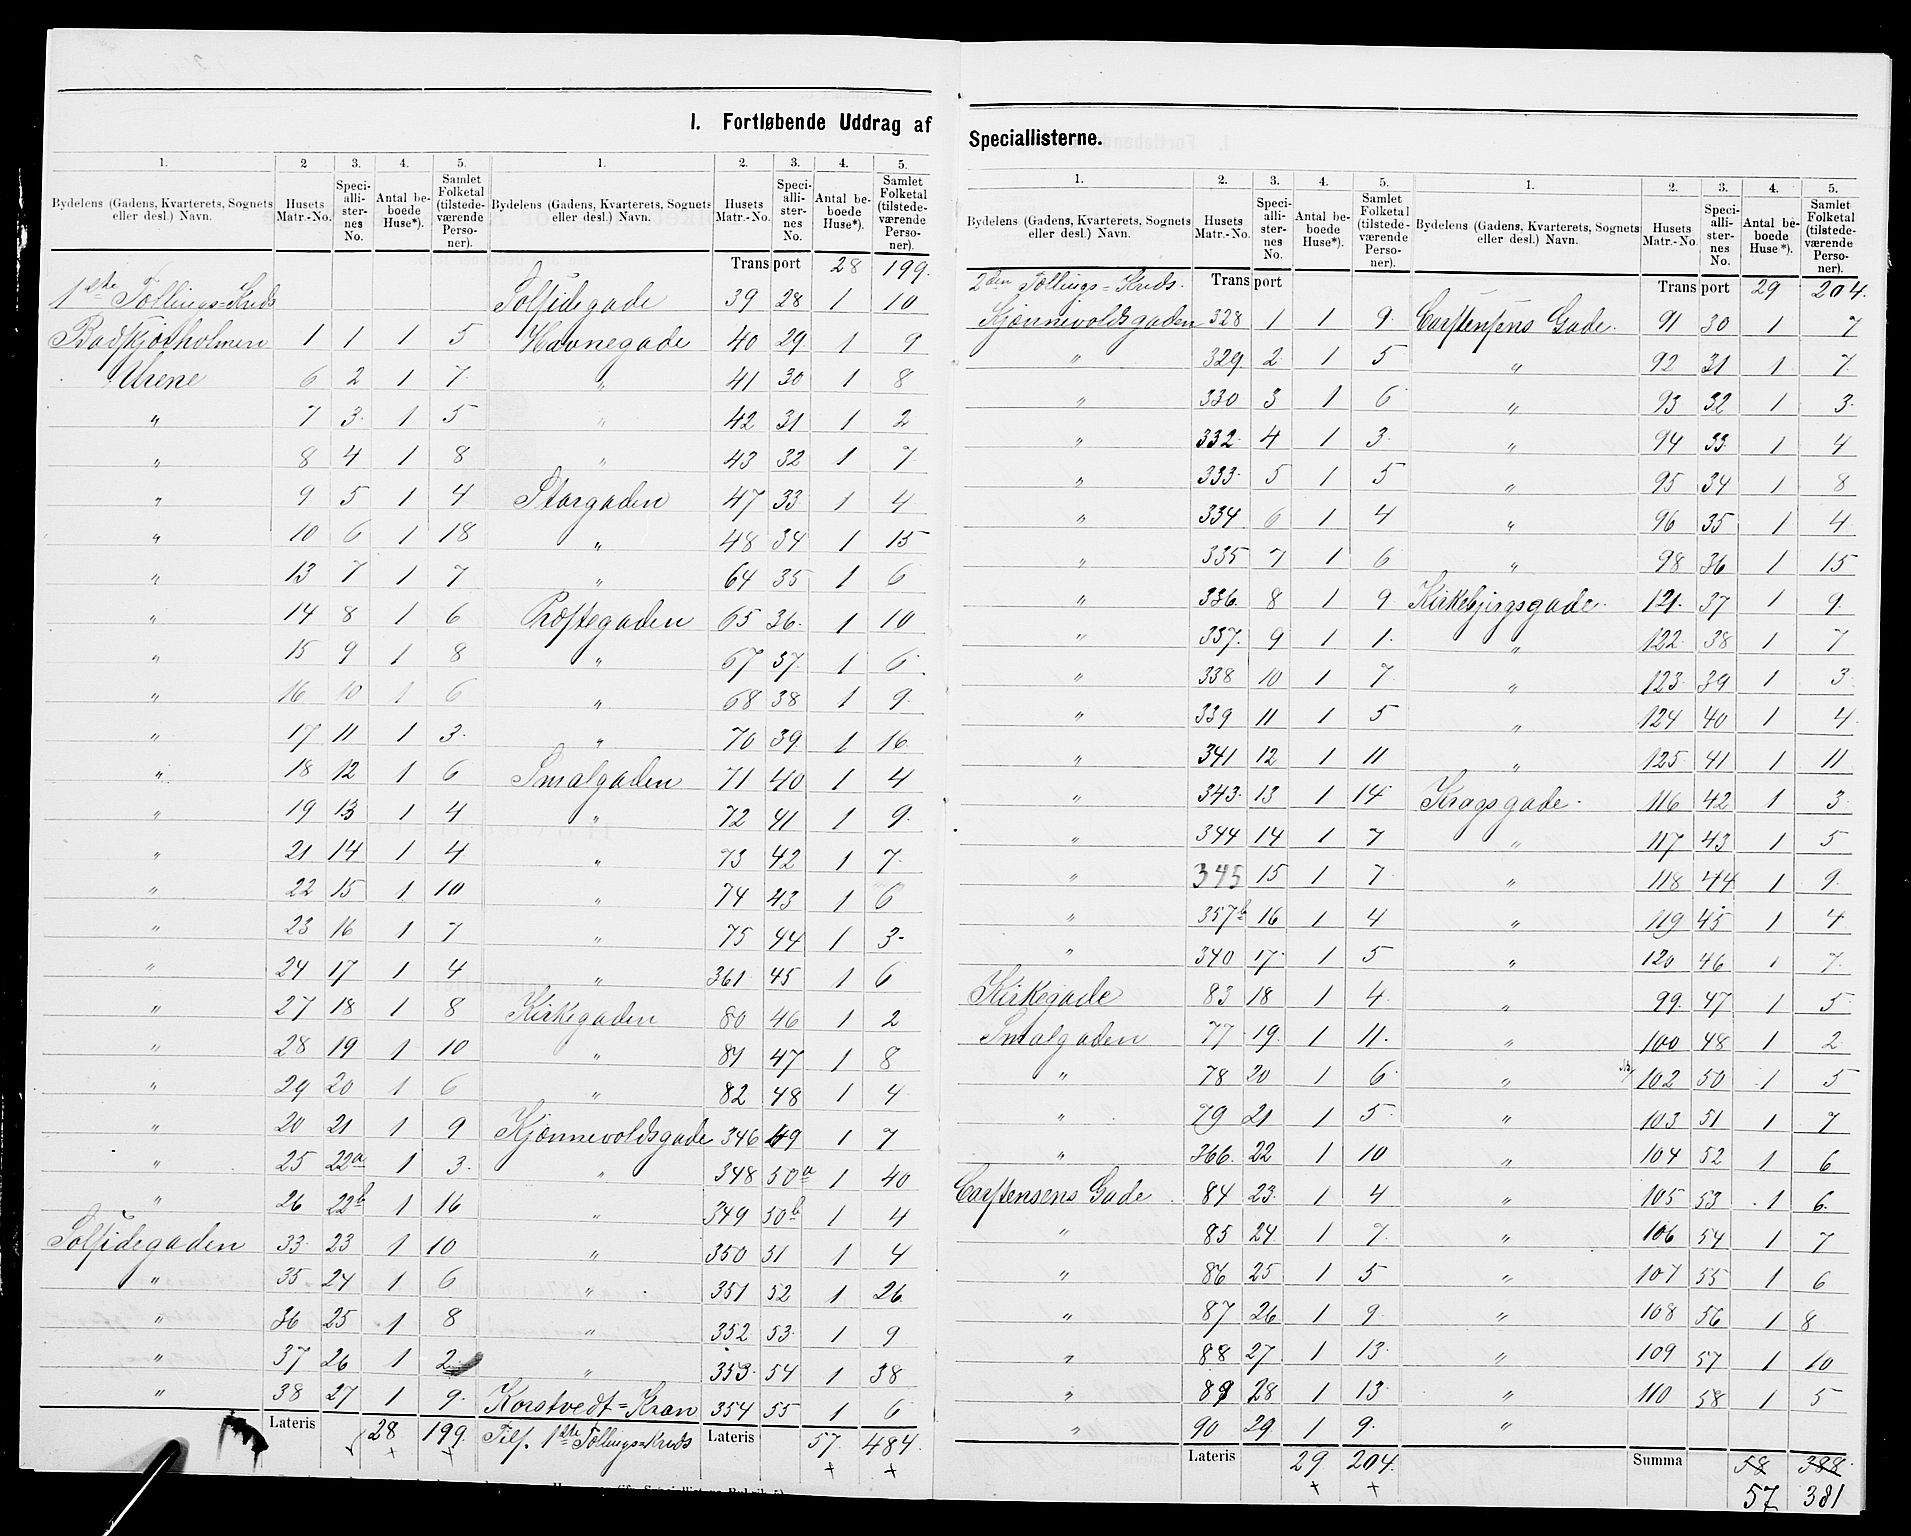 I. Fortløbende Uddrag af Speciallisterne.
1. 2 3. 4. 5. 1. 2. 3. 4. 5.
Bydelens (Gadens, Kvarterets, Sognets eller desl.) Navn. Husets Matr.-No. Speciallisternes No. Antal beboede Huse*). Samlet Folketal (tilstedeværende Personer). Bydelens (Gadens, Kvarterets, Sognets eller desl.) Navn. Husets Matr.-No. Speciallisternes No. Antal beboede Huse*). Samlet Folketal (tilstedeværende Personer).
Transport 28 199.
1ste Tællings=Kreds Solsidegade 39 28 1 10
1 1 1 5 Havnegade 40 29 1 9
Urene 6 2 1 7 " 41 30 1 8
" 7 3 1 5 " 42 31 1 2
" 8 4 1 8 " 43 32 1 7
" 9 5 1 4 Storgaden 47 33 1 4
" 10 6 1 18 " 48 34 1 15
" 13 7 1 7 " 64 35 1 6
" 14 8 1 6 Præstegaden 65 36 1 10
" 15 9 1 8 " 67 37 1 6
" 16 10 1 6 " 68 38 1 9
" 17 11 1 3 " 70 39 1 16
" 18 12 1 6 Smalgaden 71 40 1 4
" 19 13 1 4 " 72 41 1 9
" 21 14 1 4 " 73 42 1 7
" 22 15 1 10 " 74 43 1 6
" 23 16 1 7 " 75 44 1 3
" 24 17 1 4 " 361 45 1 6
" 27 18 1 8 Kirkegaden 80 46 1 2
" 28 19 1 10 " 81 47 1 8
" 29 20 1 6 " 82 48 1 4
" 20 21 1 9 Kjønnevoldsgade 346 49 1 7
" 25 22a 1 3 " 348 50a 1 40
" 26 22b 1 16 " 349 50b 1 4
Solsidegaden 33 23 1 10 " 350 51 1 4
" 35 24 1 6 " 351 52 1 26
" 36 25 1 8 " 352 53 1 9
" 37 26 1 2 " 353 54 1 38
" 38 27 1 9 Korstvedt=Kran 354 55 1 6
Lateris 28 199 Tils. 1ste Tællings=Kreds Lateris 57 484
1. 2. 3. 4. 5. 1. 2. 3. 4. 5.
Bydelens (Gadens, Kvarterets, Sognets eller desl.) Navn. Husets Matr.-No. Speciallisternes No. Antal beboede Huse*). Samlet Folketal (tilstedeværende Personer). Bydelens (Gadens, Kvarterets, Sognets eller desl.) Navn. Husets Matr.-No. Speciallisternes No. Antal beboede Huse*). Samlet Folketal (tilstedeværende Personer).
2den Tællings=Kreds. Transport Transport 29 204.
Kjønnevoldsgaden 328 1 1 9 Carstensens Gade 91 30 1 7
" 329 2 1 5 " 92 31 1 7
" 330 3 1 6 " 93 32 1 3
" 332 4 1 3 " 94 33 1 4
" 333 5 1 5 " 95 34 1 8
" 334 6 1 4 " 96 35 1 4
" 335 7 1 6 " 98 36 1 15
" 336 8 1 9 Kirkebjergsgade 121 37 1 9
" 337 9 1 1 " 122 38 1 7
" 338 10 1 7 " 123 39 1 3
" 339 11 1 5 " 124 40 1 4
" 341 12 1 11 " 125 41 1 11
" 343 13 1 14 Kragsgade 116 42 1 3
" 344 14 1 7 " 117 43 1 5
" 345 15 1 7 " 118 44 1 9
" 357b 16 1 4 " 119 45 1 4
" 340 17 1 5 " 120 46 1 7
Kirkegade 83 18 1 4 " 99 47 1 5
Smalgaden 77 19 1 11 " 100 48 1 2
" 78 20 1 6 " 102 50 1 5
" 79 21 1 5 " 103 51 1 7
" 366 22 1 10 " 104 52 1 6
Carstensens Gade 84 23 1 4 " 105 53 1 6
" 85 24 1 7 " 106 54 1 7
" 86 25 1 5 " 107 55 1 6
" 87 26 1 9 " 108 56 1 8
" 88 27 1 13 " 109 57 1 10
" 89 28 1 13 " 110 58 1 5
" 90 29 1 9 "
Lateris 29 204 Summa 58 388
57 381